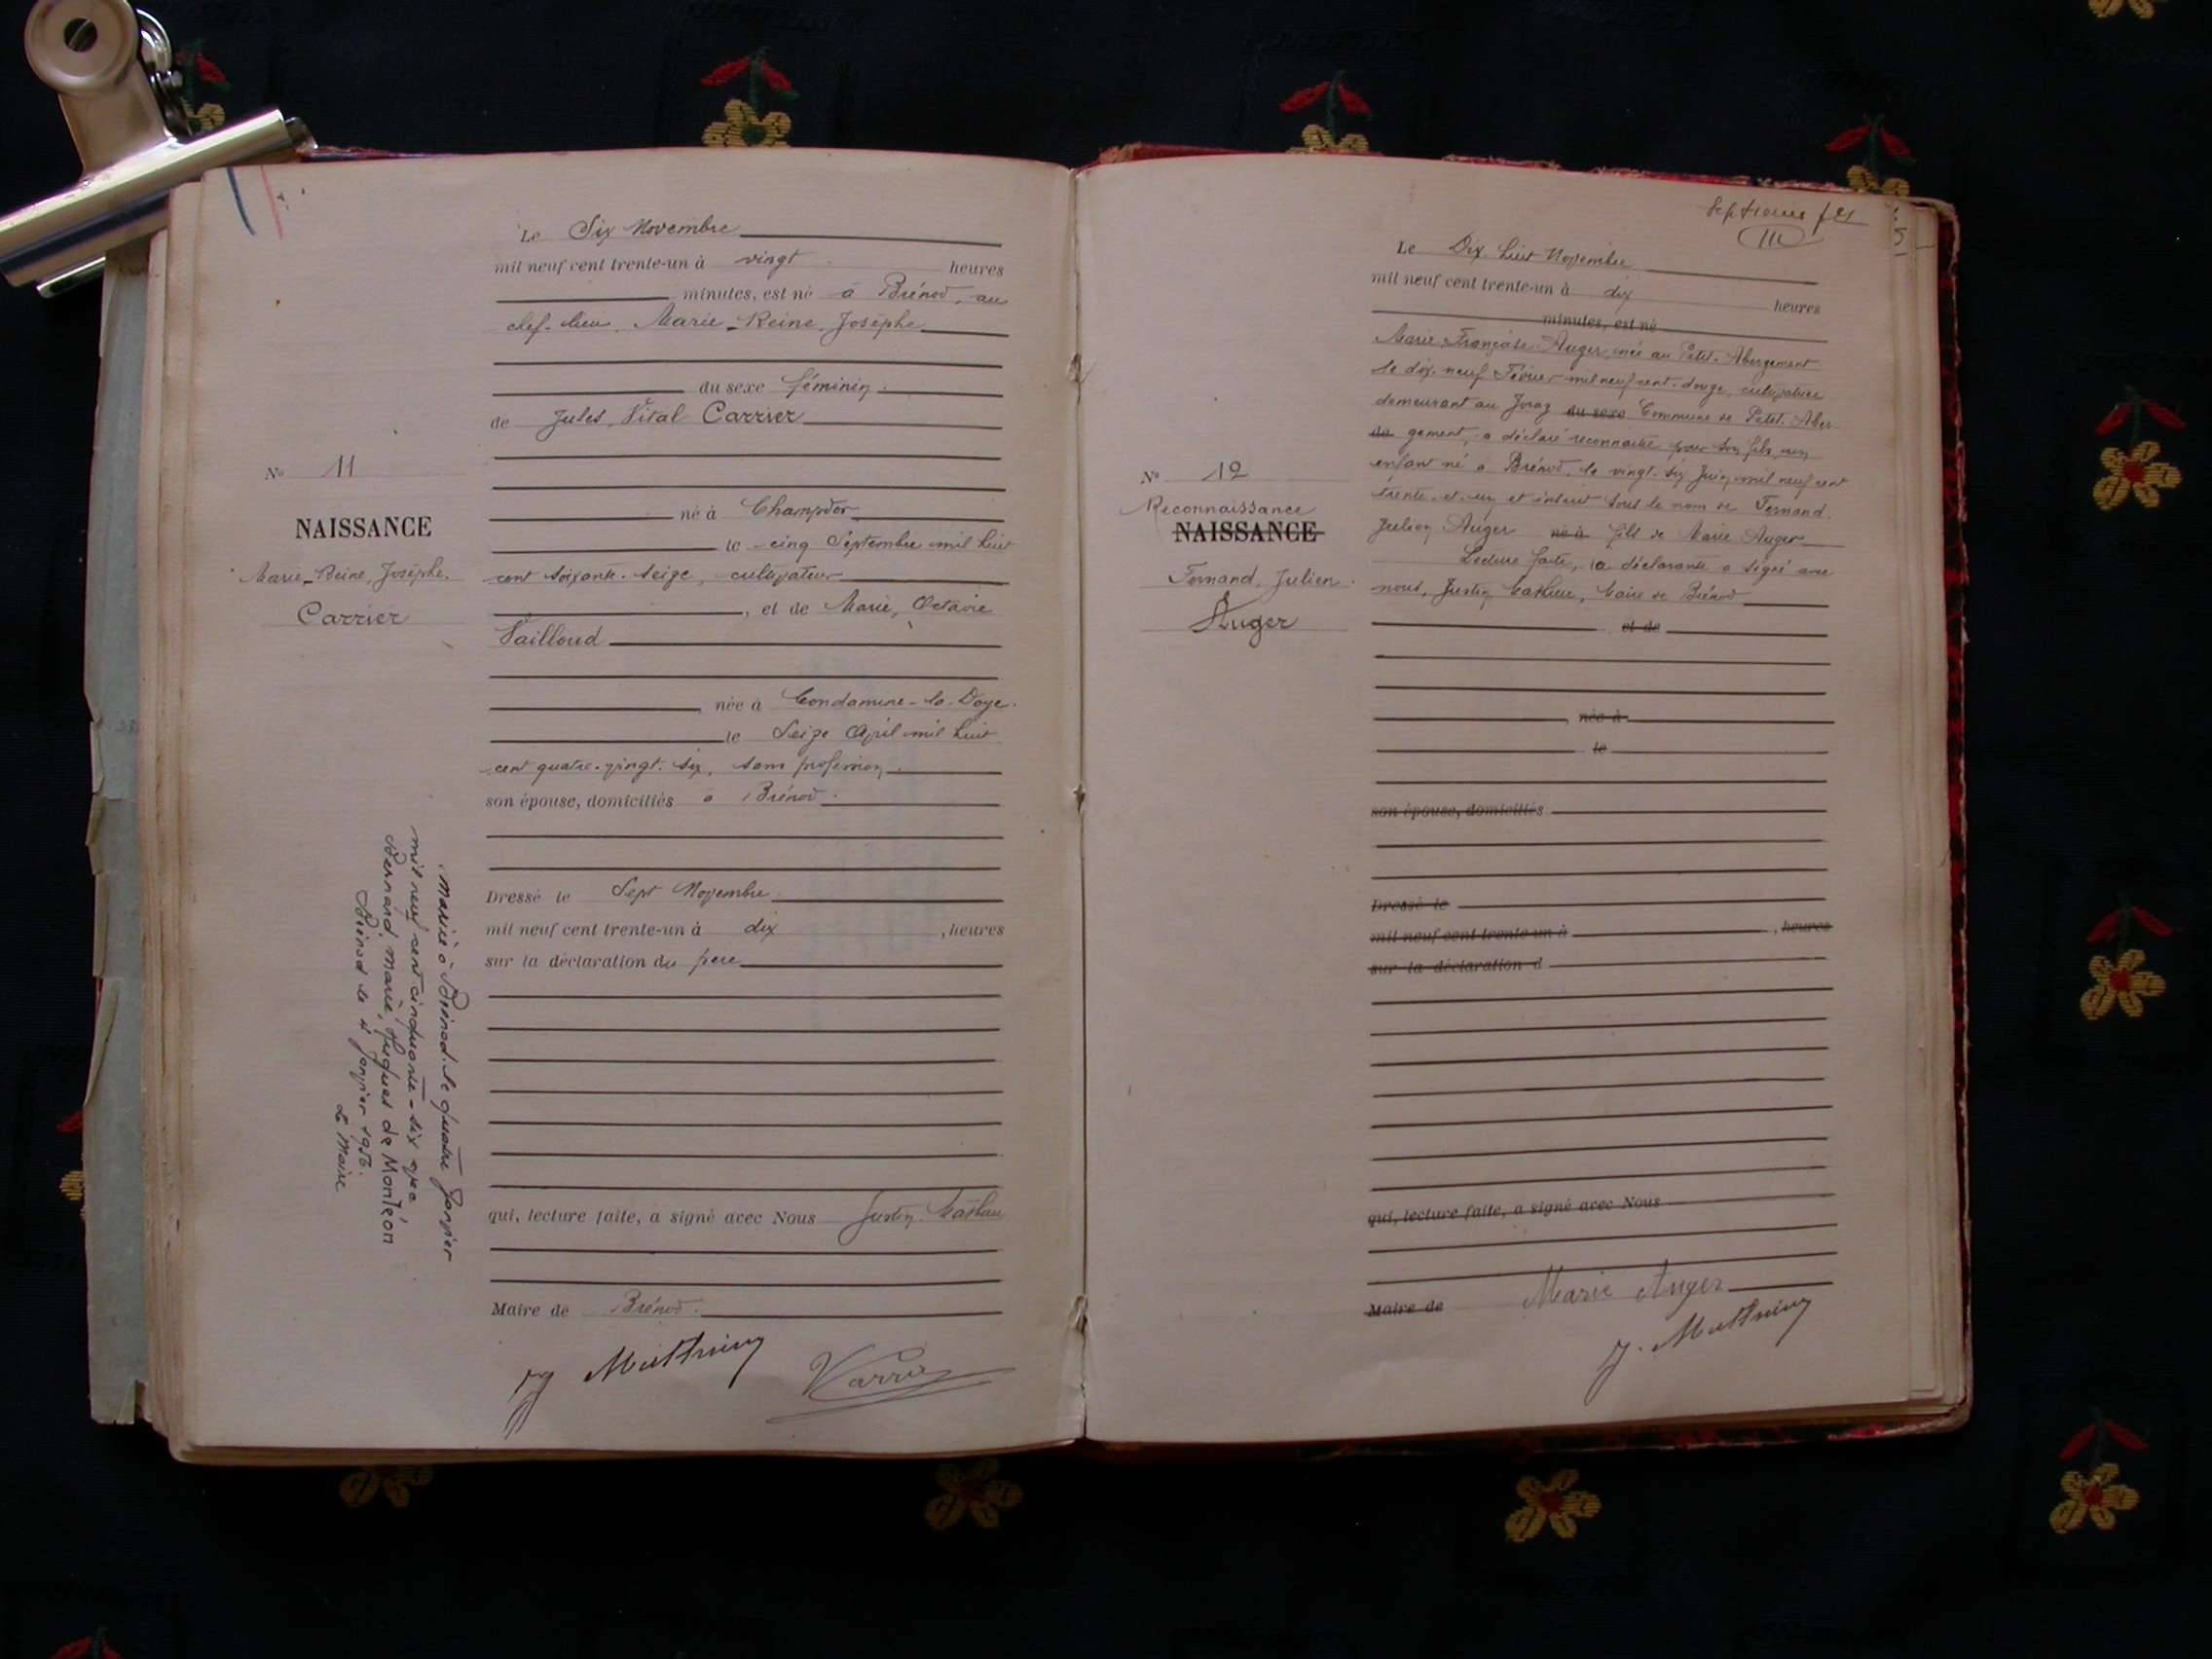 Le Six Novembre
mil neuf cent trente-un à vingt heures
minutes, est né à Brénod, au
chef-lieu, Marie-Reine, Josèphe
du sexe féminin.
de Jules, Vital Carrier
No 11
NAISSANCE
Marie-Reine, Josèphe.
Carrier
né à Champdor
le cinq Septembre mil huit
cent soixante-seize, cultivateur
, et de Marie, Octavie
Vailloud
née à Condamine-la-Doye.
le Seize Avril mil huit
cent quatre-vingt-six, sans profession.
son épouse, domiciliés à Brénod.
Dressé le Sept Novembre
mil neuf cent trente-un à dix , heures
sur la déclaration du père
qui, lecture faite, a signé avec Nous Justin Mathieu
Maire de Brénod.
J Mathieu Carrier
Mariée à Brénod le quatre Janvier
mil neuf cent cinquante-six avec
Bernard, Marie, Hugues de Montléon
Brénod le 4 Janvier 1956.
Le Maire
Septième f et
Le Dix huit Novembre
mil neuf cent trente-un à dix heures
minutes, est né
Marie Françoise Auger, née au Petit-Abergement
le dix-neuf Février mil neuf cent-douze, cultivatrice
demeurant au Jorat du sexe Commune de Petit-Aber-
de gement, a déclaré reconnaître pour son fils, un
enfant né à Brénod, le vingt-six Juin mil neuf cent
trente-et-un et inscrit sous le nom de Fernand
Julien Auger né à fils de Marie Auger
Lecture faite, la déclarante a signé avec
nous, Justin Mathieu, Maire de Brénod
No 12
Reconnaissance
NAISSANCE
Fernand, Julien.
Auger
et de
, née à
le
son épouse, domiciliés
Dressé le
mil neuf cent trente-un à , heures
sur la déclaration d
qui, lecture faite, a signé avec Nous
Maire de Marie Auger
J. Mathieu